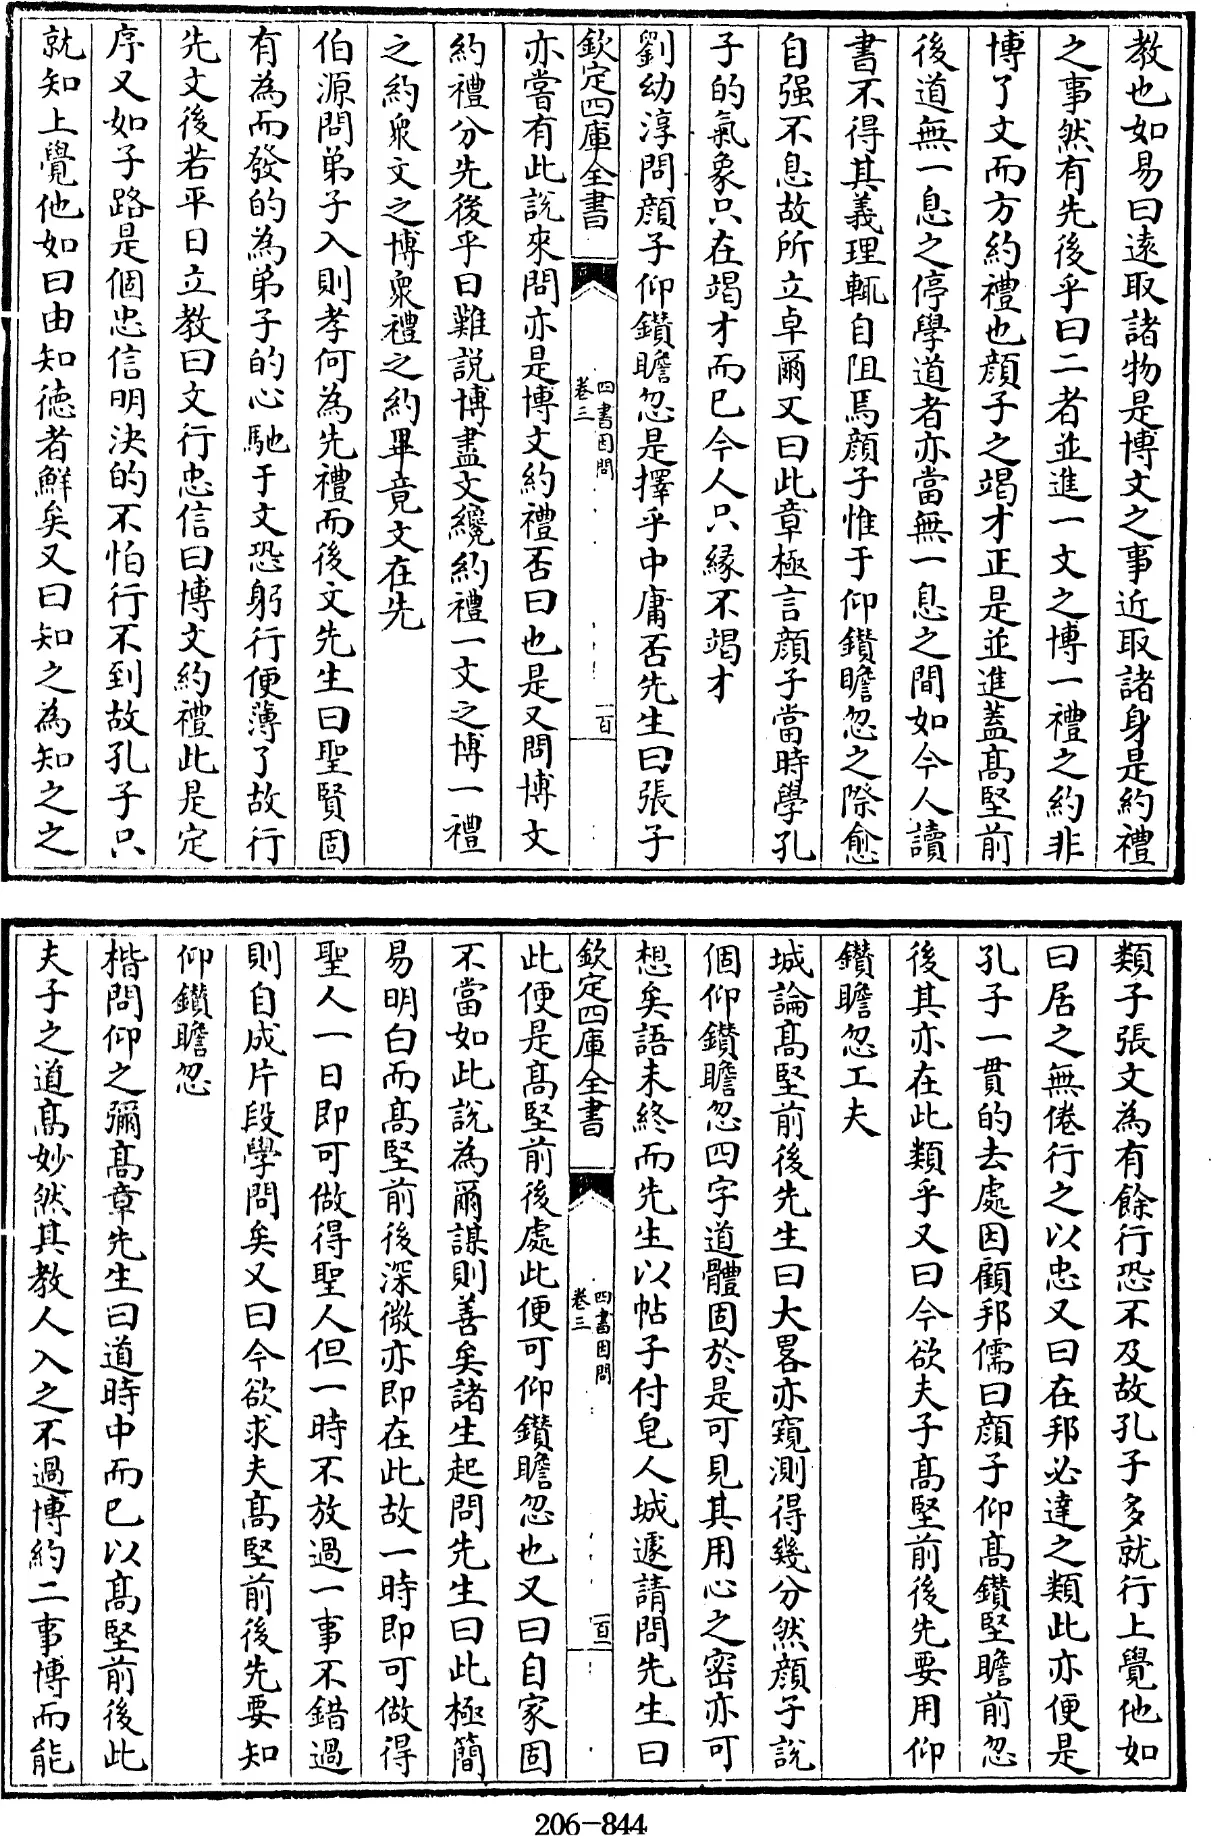 教也如易曰遠取諸物是博文之事近取諸身是約禮
之事然有先後乎曰二者並進一文之博一禮之約非
博了文而方約禮也顔子之竭才正是並進蓋髙堅前
後道無一息之停學道者亦當無一息之間如今人讀
書不得其義理輒自阻焉顔子惟于仰鑚瞻忽之際愈
自强不息故所立卓爾又曰此章極言顔子當時學孔
子的氣象只在竭才而已今人只縁不竭才
劉幼淳問顔子仰鑚瞻忽是擇乎中庸否先生曰張子
欽定四庫全書
四書因問
卷三
一百
亦嘗有此説來問亦是博文約禮否曰也是又問博文
約禮分先後乎曰難説博盡文纔約禮一文之博一禮
之約衆文之博衆禮之約畢竟文在先
伯源問弟子入則孝何為先禮而後文先生曰聖賢固
有為而發的為弟子的心馳于文恐躬行便薄了故行
先文後若平日立教曰文行忠信曰博文約禮此是定
序又如子路是個忠信明決的不怕行不到故孔子只
就知上覺他如曰由知徳者鮮矣又曰知之為知之之
類子張文為有餘行恐不及故孔子多就行上覺他如
曰居之無倦行之以忠又曰在邦必達之類此亦便是
孔子一貫的去處因顧邦儒曰顔子仰髙鑚堅瞻前忽
後其亦在此類乎又曰今欲夫子髙堅前後先要用仰
鑚瞻忽工夫
城論髙堅前後先生曰大畧亦窺測得幾分然顔子説
個仰鑚瞻忽四字道體固於是可見其用心之密亦可
想矣語未終而先生以帖子付皂人城遽請問先生曰
欽定四庫全書
四書因問
卷三
一百一
此便是髙堅前後處此便可仰鑚瞻忽也又曰自家固
不當如此説為爾謀則善矣諸生起問先生曰此極簡
易明白而髙堅前後深微亦即在此故一時即可做得
聖人一日即可做得聖人但一時不放過一事不錯過
則自成片段學問矣又曰今欲求夫髙堅前後先要知
仰鑚瞻忽
楷問仰之彌髙章先生曰道時中而已以髙堅前後此
夫子之道髙妙然其教人入之不過博約二事博而能
206-844